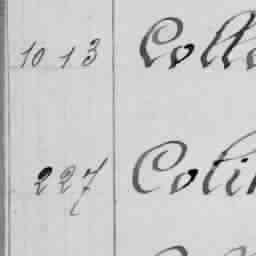 1013 Coll
227 Coli